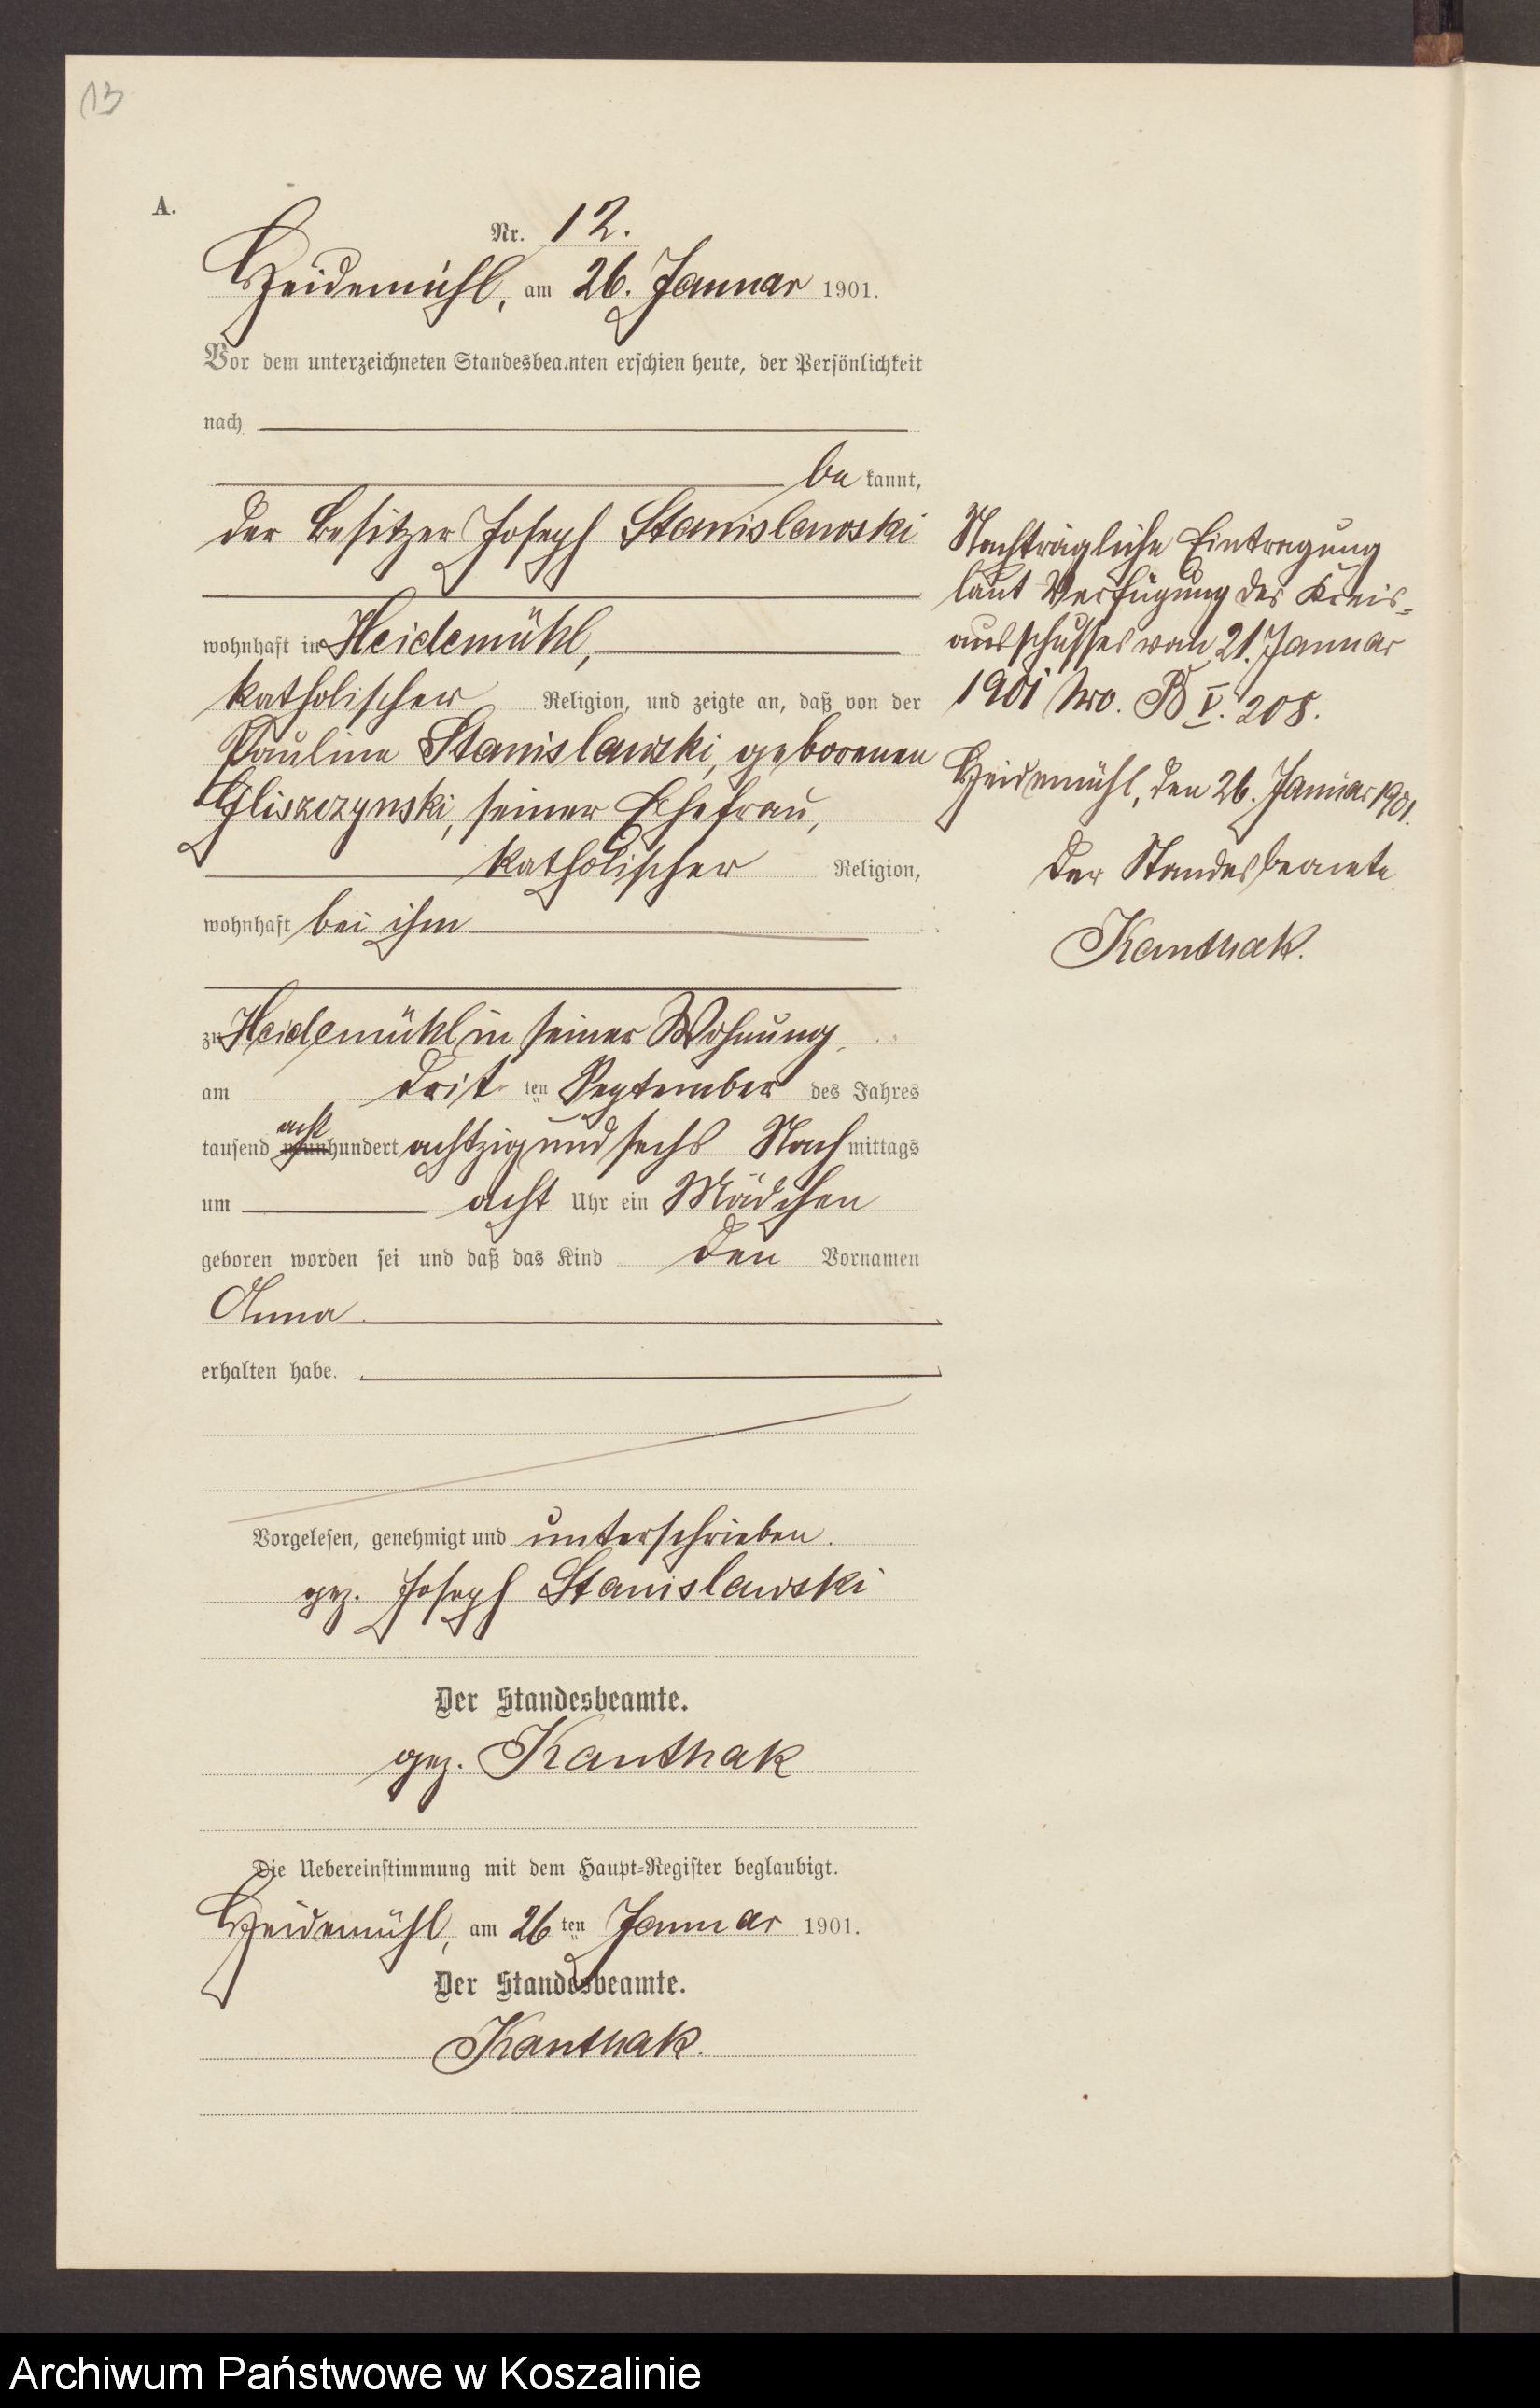 13
A.
Nr. 12.
Heidemühl, am 26. Januar 1901.
Vor dem unterzeichneten Standesbeamten erschien heute, der Persönlichkeit
nach
be kannt,
der Besitzer Joseph Stanislawski
wohnhaft in Heidemühl,
katholischer Religion, und zeigte an, daß von der
Pauline Stanislawski, geborenen
Gliszczynski, seiner Ehefrau,
katholischer Religion,
wohnhaft bei ihm
zu Heidemühl in seiner Wohnung,
am drit ten September des Jahres
acht
tausend neunhundert achtzig und sechs Nach mittags
um acht Uhr ein Mädchen
geboren worden sei und daß das Kind den Vornamen
Anna
erhalten habe.
Vorgelesen, genehmigt und unterschrieben.
gez. Joseph Stanislawski
Der Standesbeamte.
gez. Kanthak
Die Uebereinstimmung mit dem Haupt-Register beglaubigt.
Heidemühl, am 26ten Januar 1901.
Der Standesbeamte.
Kanthak.
Nachträgliche Eintragung
laut Verfügung des Kreis-
ausschusses vom 21. Januar
1901 No. B V. 208.
Heidemühl, den 26. Januar 1901.
Der Standesbeamte.
Kanthak.
Archiwum Państwowe w Koszalinie